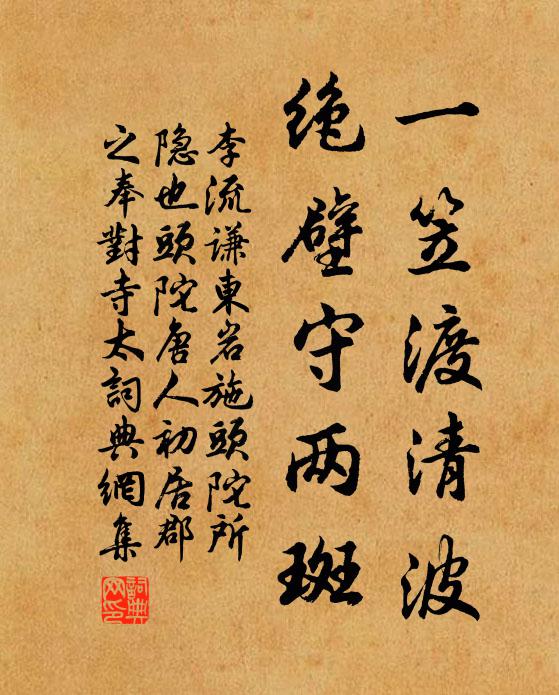 一笠渡清波
绝壁守两斑
李流谦東岩施頭陀所
隐也頭陀唐人初居郡
之奉對寺太詞典網集
詞典网印